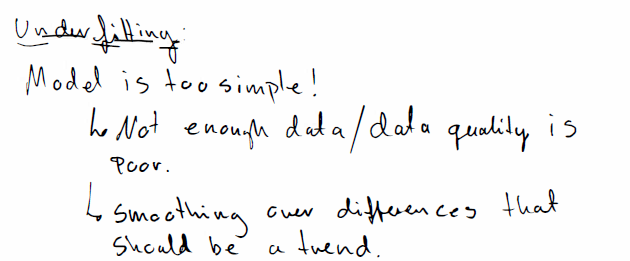 Underfitting:
Model is too simple!
↳ Not enough data/data quality is
poor.
↳ smoothing over differences that
should be a trend.